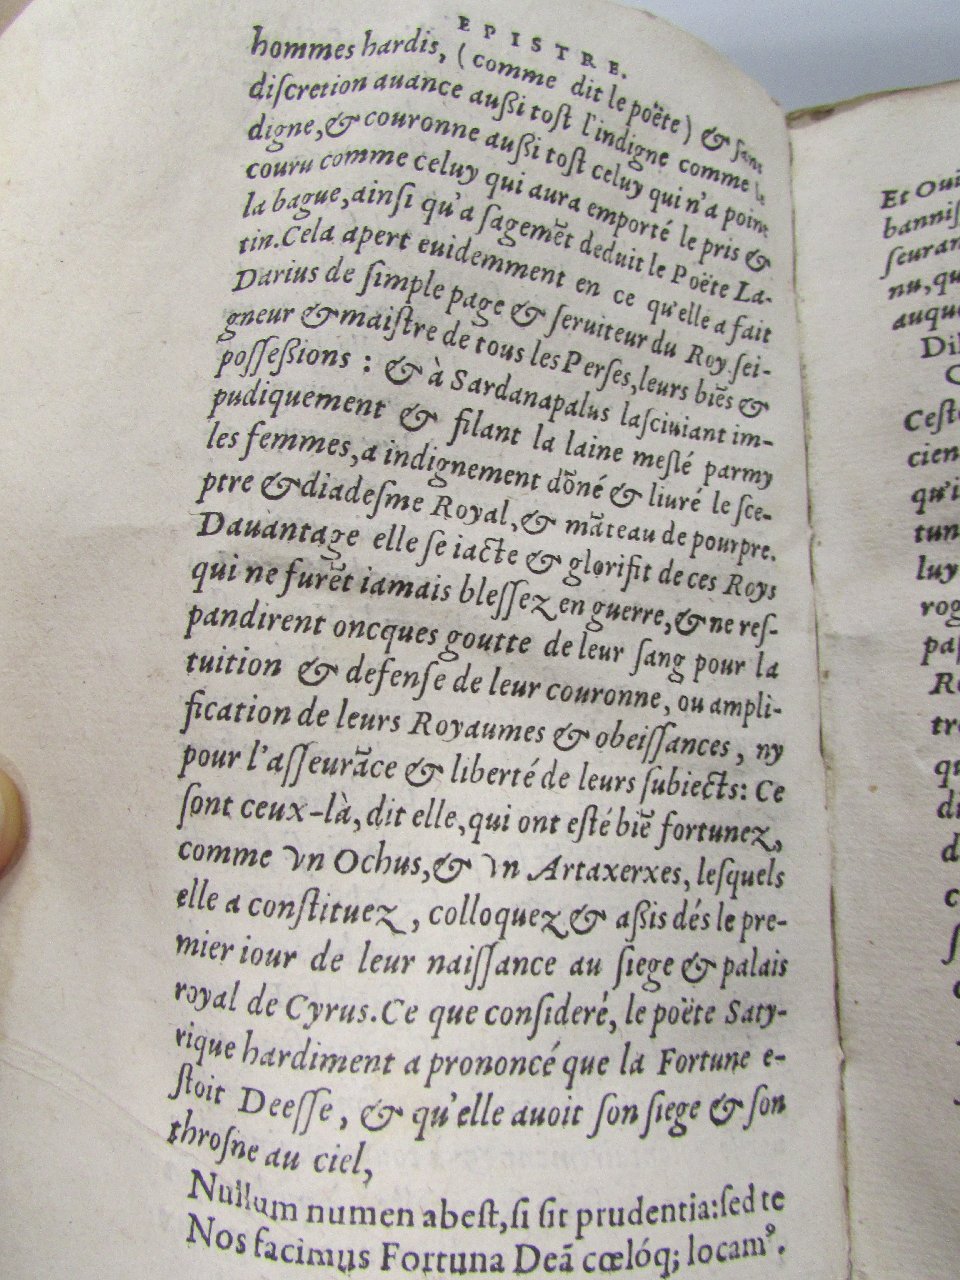 EPISTRE.
hommes hardis, (comme dit le poëte) & sans
discretion auance außi tost l'indigne comme le
digne, & couronne außi tost celuy qui n'a point
couru comme celuy qui aura emporté le pris &
la bague, ainsi qu'a sagemēt deduit le Poëte La-
tin. Cela apert euidemment en ce qu'elle a fait
Darius de simple page & seruiteur du Roy sei-
gneur & maistre de tous les Perses, leurs biēs &
possessions : & à Sardanapalus lasciuiant im-
pudiquement & filant la laine meslé parmy
les femmes, a indignement dōné & liuré le sce-
ptre & diadesme Royal, & māteau de pourpre.
Dauantage elle se iacte & glorifit de ces Roys
qui ne furēt iamais blessez en guerre, & ne res-
pandirent oncques goutte de leur sang pour la
tuition & defense de leur couronne, ou ampli-
fication de leurs Royaumes & obeissances, ny
pour l'asseurāce & liberté de leurs subiects: Ce
sont ceux-là, dit elle, qui ont esté biē fortunez,
comme vn Ochus, & vn Artaxerxes, lesquels
elle a constituez, colloquez & aßis dés le pre-
mier iour de leur naissance au siege & palais
royal de Cyrus. Ce que consideré, le poëte Saty-
rique hardiment a prononcé que la Fortune e-
stoit Deesse, & qu'elle auoit son siege & son
throsne au ciel,
Nullum numen abest, si sit prudentia: sed te
Nos facimus Fortuna Deā cœlóq; locam⁹.
Et Oui
bannis
seuran
nu, qu
auque
Dil
Ceste
cien
qu'i
tun
luy
rog
pas
Ro
tro
qu
di
d
c